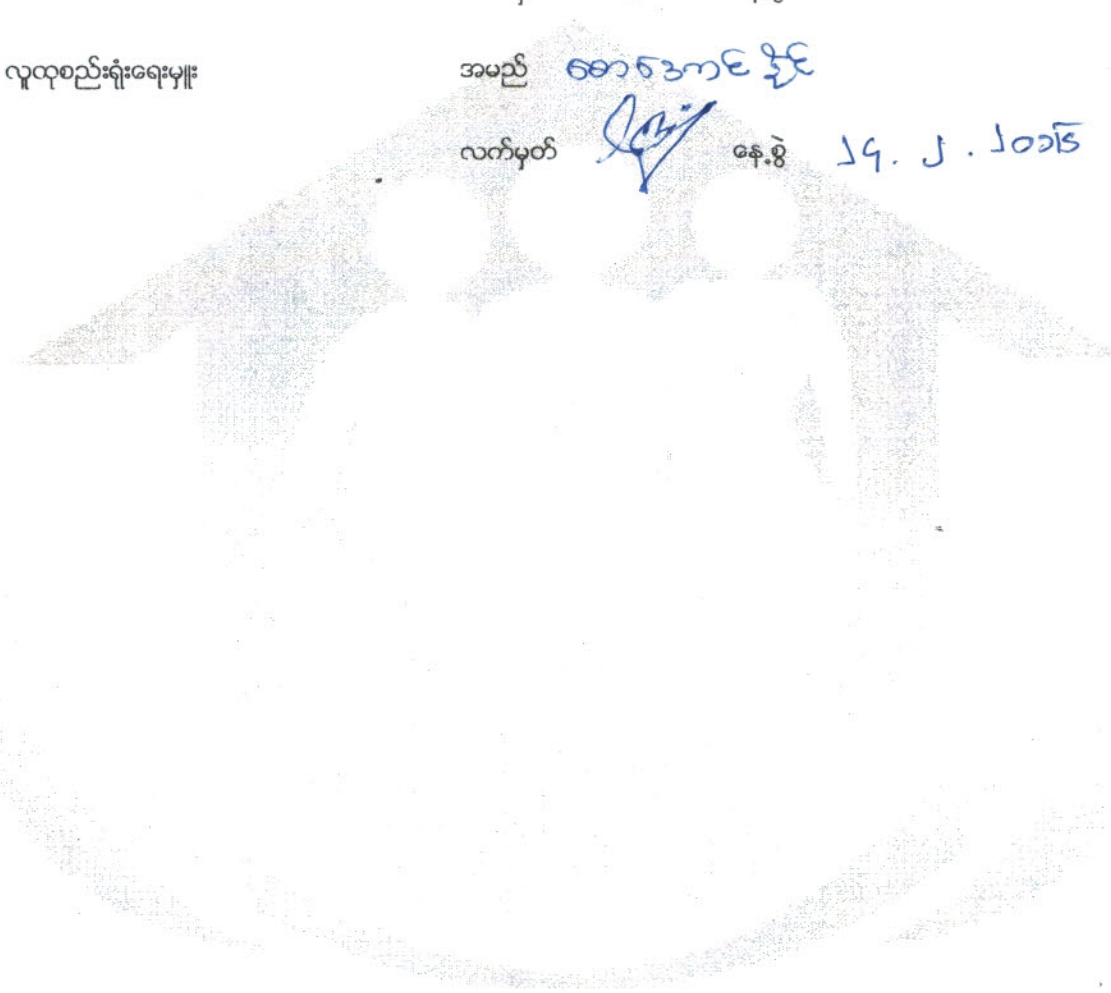 လူထုစည်းရုံးရေးမှူး အမည် စောဒေကင်နိုင်
လက်မှတ် နေ့စွဲ ၂၄. ၂. ၂၀၁၆